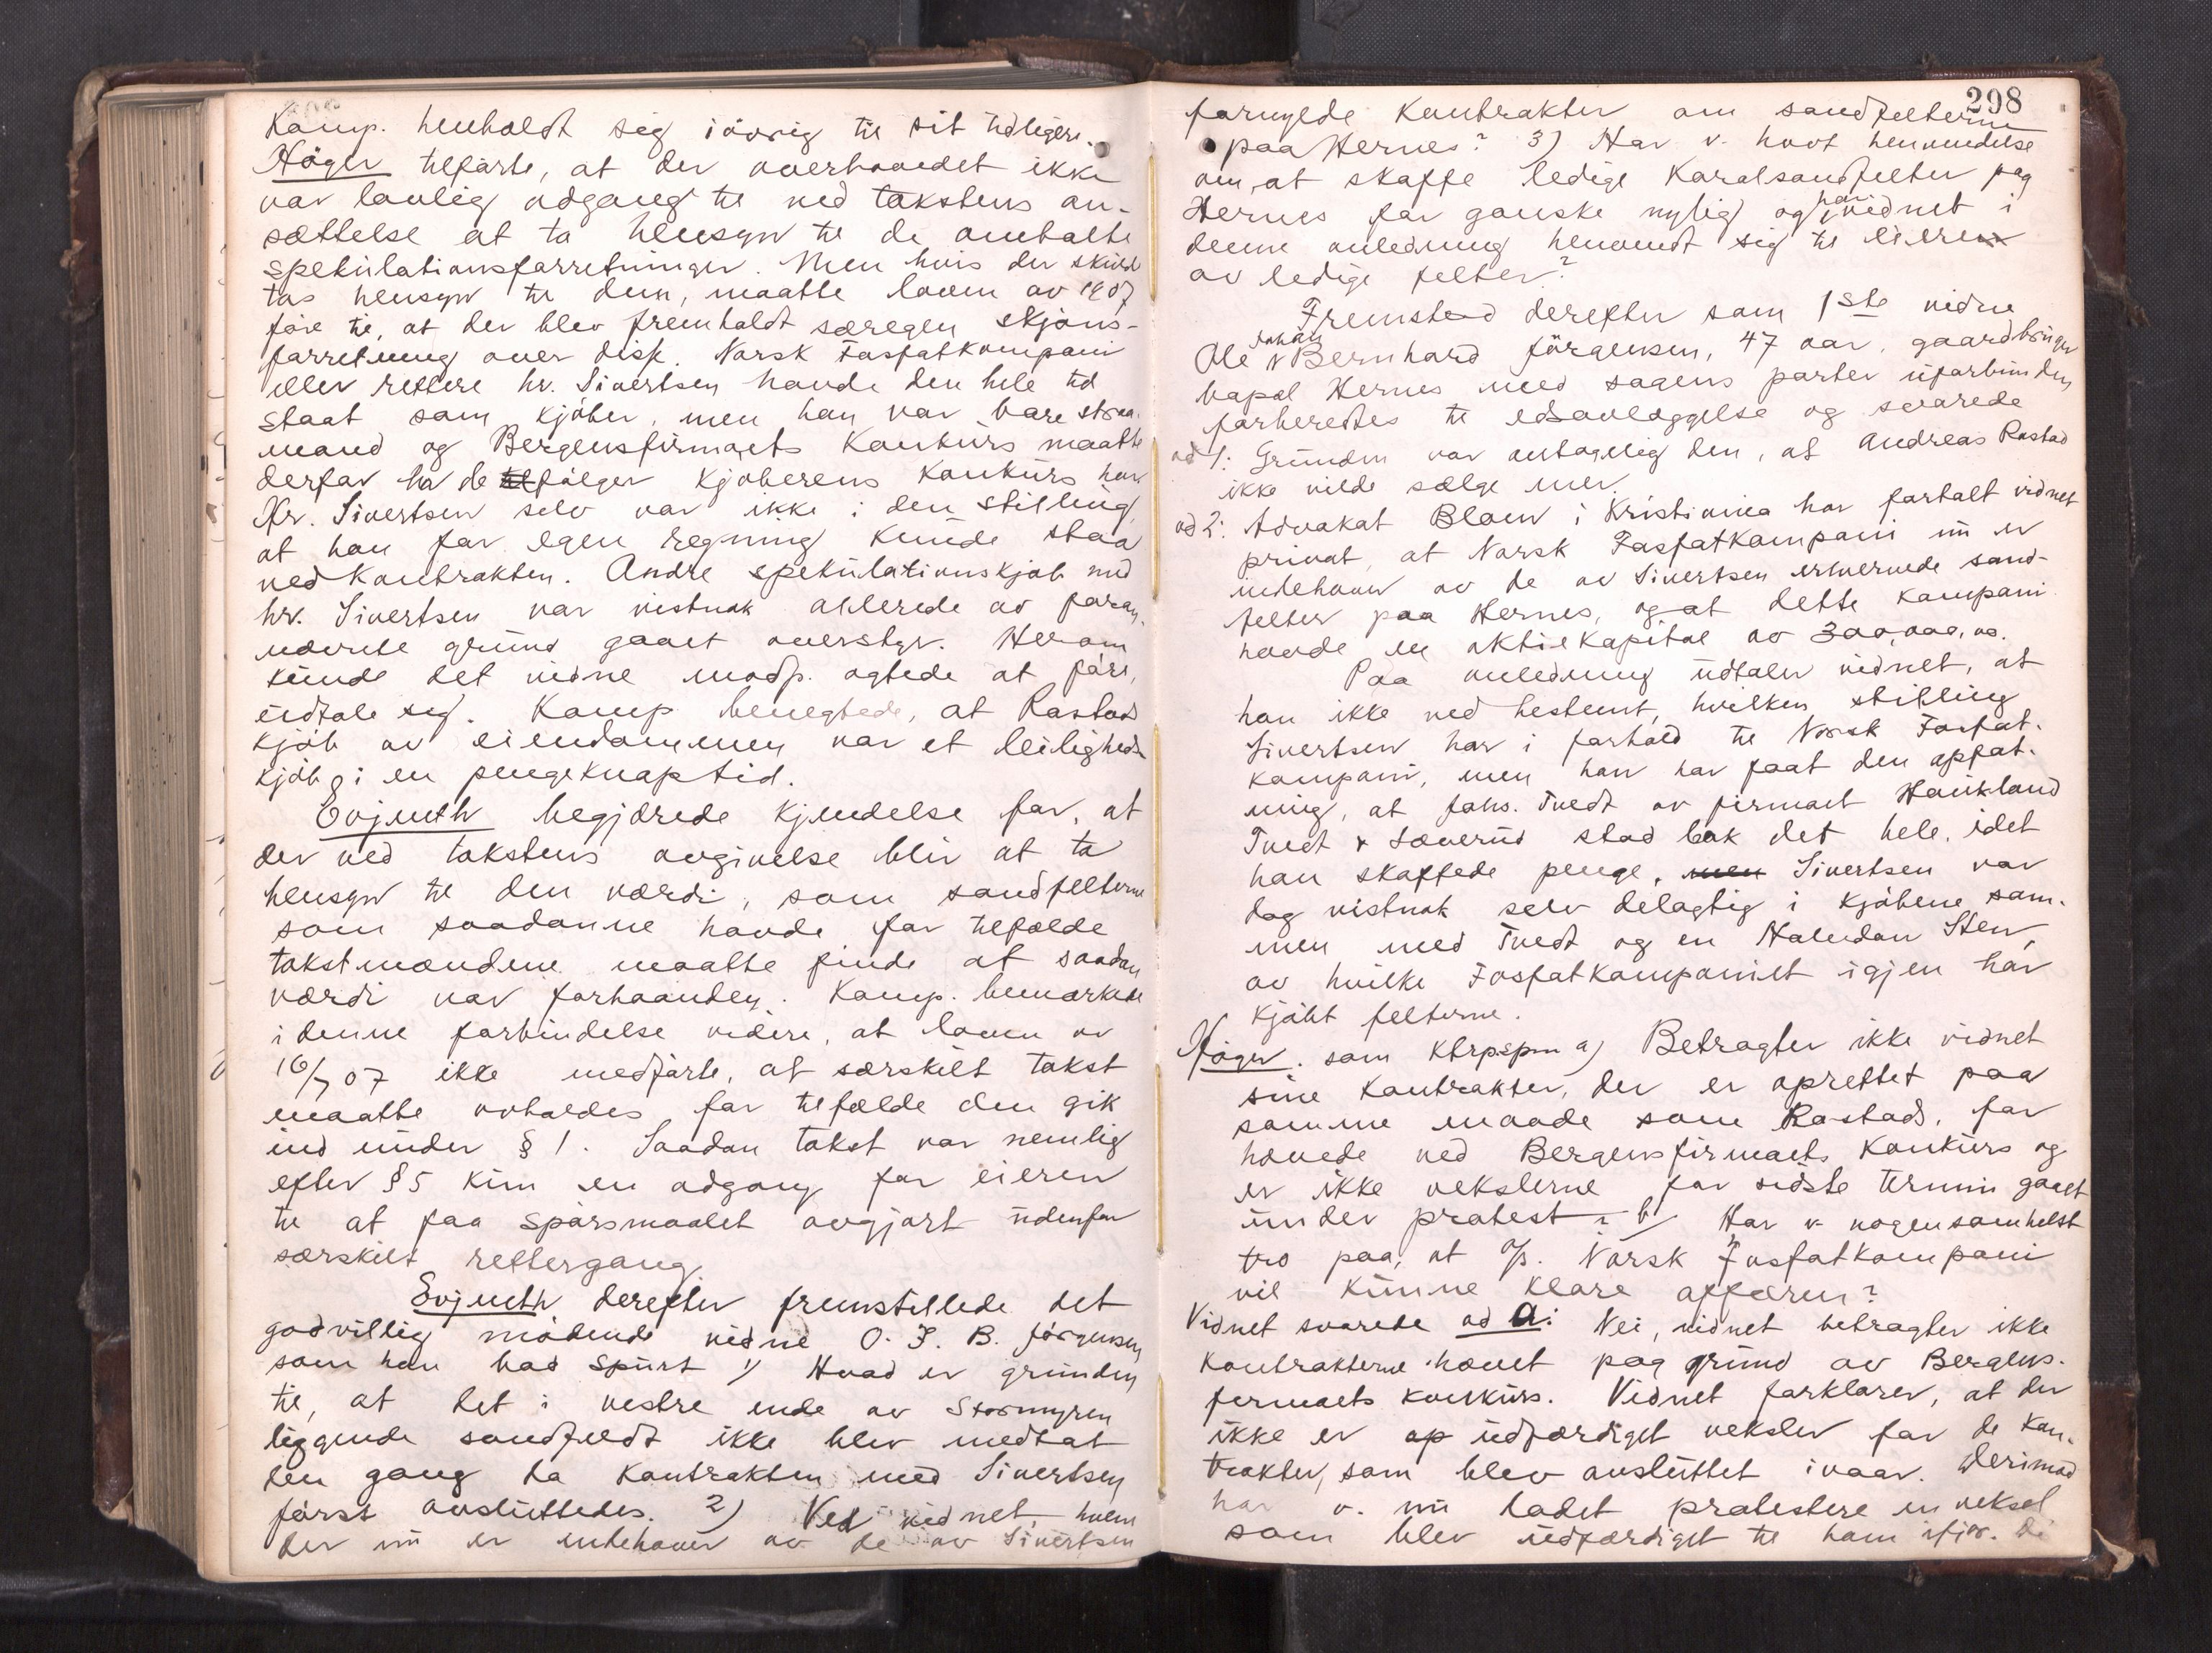 Komp. henholdt sig iövrig til sit tidligere.
Höyer tilförte, at der overhovedet ikke
var lovlig adgang til ved takstens an-
sættelse at ta hensyn til de omtalte
spekulationsforretninger. Men hvis der skuld
tas hensyn til dem, maatte loven av 1907
före til, at der blev fremholdt særegen skjöns-
forretning over disse. Norsk Fosfatkompani
eller rettere hr. Sivertsen havde den hele tid
staat som kjöber, men han var bare straa-
mand og Bergensfirmaets konkurs maatte
derfor ha de tilfölger kjöberens konkurs har
Hr. Sivertsen selv var ikke i den stilling
at han for egen regning kunde staa
ved kontrakten. Andre spekulationskjöb med
hr. Sivertsen var vistnok allerede av foran-
nævnte grund gaaet overstyr. Herom
kunde det vidne modp. agtede at före,
udtale sig. Komp benegtede, at Rastads
kjöb av eiendommen var et leiligheds-
kjöb i en pengeknap tid.
Evjenth begjærede kjendelse for, at
der ved takstens avgivelse blir at ta
hensyn til den værdi, som sandfelterne
som saadanne havde for tilfælde
takstmændene maatte finde at saadan
værdi var forhaanden. Komp. bemærkede
i denne forbindelse videre, at loven av
10/7 07 ikke medförte, at særskilt takst
maatte avholdes for tilfælde den gik
ind under § 1. Saadan takst var nemlig
efter § 5 kun en adgang for eieren
til at faa spörsmaalet avgjort udenfor
særskilt rettergang.
Evjenth derefter fremstillede det
godvillig mödende vidne O. J. B. Jörgensen
som han bad spurt 1) Hvad er grunden
til, at det i vestre ende av Stormyren
liggende sandfeldt ikke blev medtat
den gang da kontrakten med Sivertsen
först avsluttedes. 2) Ved vidnet, hvem
der nu er indehaver av de av Sivertsen
298
fornylde kontrakter om sandfelterne
paa Hernes? 3) Har v. havt henvendelse
om at skaffe ledige Koralsandfelter paa
Hernes for ganske nylig og har vidnet i
denne anledning henvendt sig til eieren
av ledige felter?
Fremstod derefter som 1ste vidne
Ole Johan Bernhard Jörgensen, 47 aar, gaardbruger
bopæl Hernes med sagens parter uforbunden
forberedtes til edsavlæggelse og svarede
ad 1: Grunden var antagelig den, at Andreas Rastad
ikke vilde sælge mer.
ad 2: Advokat Blom i Kristiania har fortalt vidnet
privat, at Norsk Fosfatkompani nu er
indehaver av de av Sivertsen erhvervede sand-
felter paa Hernes, og at dette kompani
havde en aktiekapital av 300,000,00.
Paa anledning udtaler vidnet, at
han ikke ved bestemt, hvilken stilling
Sivertsen har i forhold til Norsk Fosfat-
kompani, men han har faat den opfat-
ning, at Johs. Tvedt av firmaet Haukland
Tvedt & Sæverud stod bak det hele, idet
han skaffede penge, men Sivertsen var
dog vistnok selv delagtig i kjöbene sam-
men med Tvedt og en Halvdan Sten,
av hvilke Fosfatkompaniet igjen har
kjöbt felterne.
Höyer. som ktrpspm a) Betragter ikke vidnet
sine kontrakter, der er oprettet paa
samme maade som Rastads, for
hævede ved Bergensfirmaets konkurs og
er ikke vekslerne for sidste termin gaaet
under protest? b) Har v. nogensomhelst
tro paa, at A/S. Norsk Fosfatkompani
vil kunne klare affæren?
Vidnet svarede ad a: Nei, vidnet betragter ikke
kontrakterne hævet paa grund av Bergens-
fermaets konkurs. Vidnet forklarer, at der
ikke er op udfærdiget veksler for de kon-
trakter, som blev avsluttet ivaar. Derimod
har v. nu ladet protestere en veksel
som blev udfærdiget til ham ifjor. Di